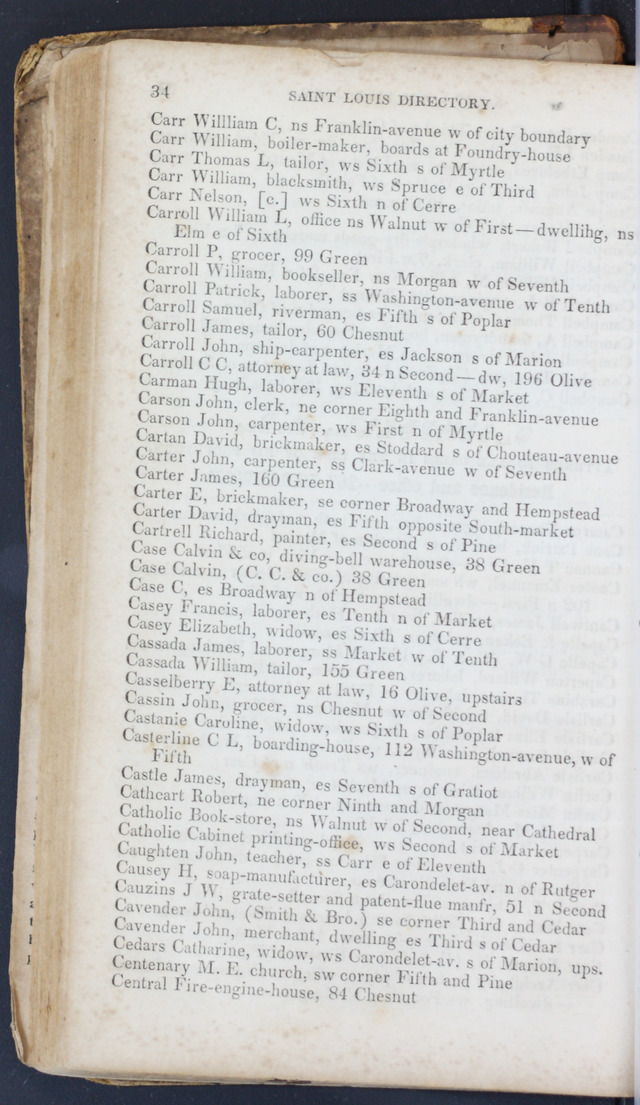 34
SAINT LOUIS DIRECTORY.
Carr Willliam C, ns Franklin-avenue w of city boundary
Carr William, boiler-maker, boards at Foundry-house
Carr Thomas L, tailor, ws Sixth s of Myrtle
Carr William, blacksmith, ws Spruce e of Third
Carr Nelson, [c.] ws Sixth n of Cerre
Carroll William L, office ns Walnut w of First—dwellihg, ns
Elm e of Sixth
Carroll P, grocer, 99 Green
Carroll William, bookseller, ns Morgan w of Seventh
Carroll Patrick, laborer, ss Washington-avenue w of Tenth
Carroll Samuel, riverman, es Fifth s of Poplar
Carroll James, tailor, 60 Chesnut
Carroll John, ship-carpenter, es Jackson s of Marion
Carroll C C, attorney at law, 34 n Second—dw, 196 Olive
Carman Hugh, laborer, ws Eleventh s of Market
Carson John, clerk, ne corner Eighth and Franklin-avenue
Carson John, carpenter, ws First n of Myrtle
Cartan David, brickmaker, es Stoddard s of Chouteau-avenue
Carter John, carpenter, ss Clark-avenue w of Seventh
Carter James, 160 Green
Carter E, brickmaker, se corner Broadway and Hempstead
Carter David, drayman, es Fifth opposite South-market
Cartrell Richard, painter, es Second s of Pine
Case Calvin & co, diving-bell warehouse, 38 Green
Case Calvin, (C. C. & co.) 38 Green
Case C, es Broadway n of Hempstead
Casey Francis, laborer, es Tenth n of Market
Casey Elizabeth, widow, es Sixth s of Cerre
Cassada James, laborer, ss Market w of Tenth
Cassada William, tailor, 155 Green
Casselberry E, attorney at law, 16 Olive, upstairs
Cassin John, grocer, ns Chesnut w of Second
Castanie Caroline, widow, ws Sixth s of Poplar
Casterline C L, boarding-house, 112 Washington-avenue, w of
Fifth
Castle James, drayman, es Seventh s of Gratiot
Cathcart Robert, ne corner Ninth and Morgan
Catholic Book-store, ns Walnut w of Second, near Cathedral
Catholic Cabinet printing-office, ws Second s of Market
Caughten John, teacher, ss Carr e of Eleventh
Causey H, soap-manufacturer, es Carondelet-av. n of Rutger
Cauzins J W, grate-setter and patent-flue manfr, 51 n Second
Cavender John, (Smith & Bro.) se corner Third and Cedar
Cavender John, merchant, dwelling es Third s of Cedar
Cedars Catharine, widow, ws Carondelet-av. s of Marion, ups.
Centenary M. E. church, sw corner Fifth and Pine
Central Fire-engine-house, 84 Chesnut